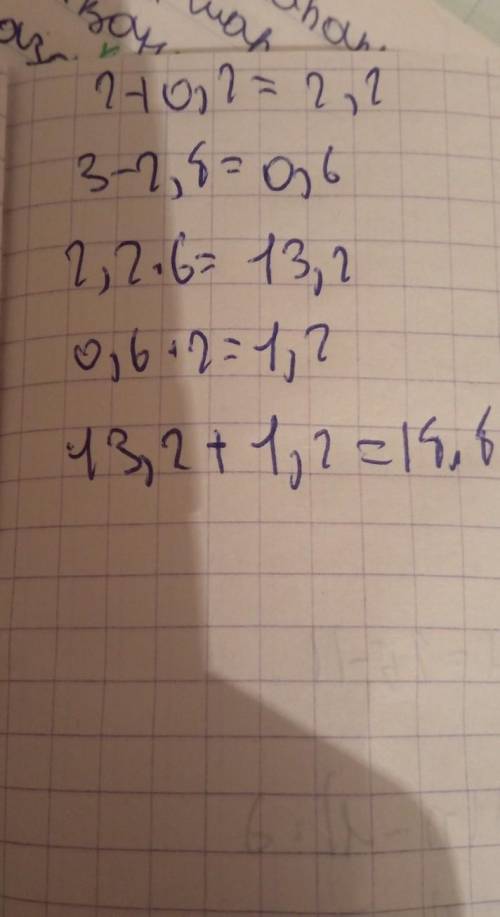 2+0,2=2,2
3-2,4=0,6
2,2·6=13,2
0,6·2=1,2
13,2+1,2=14,4